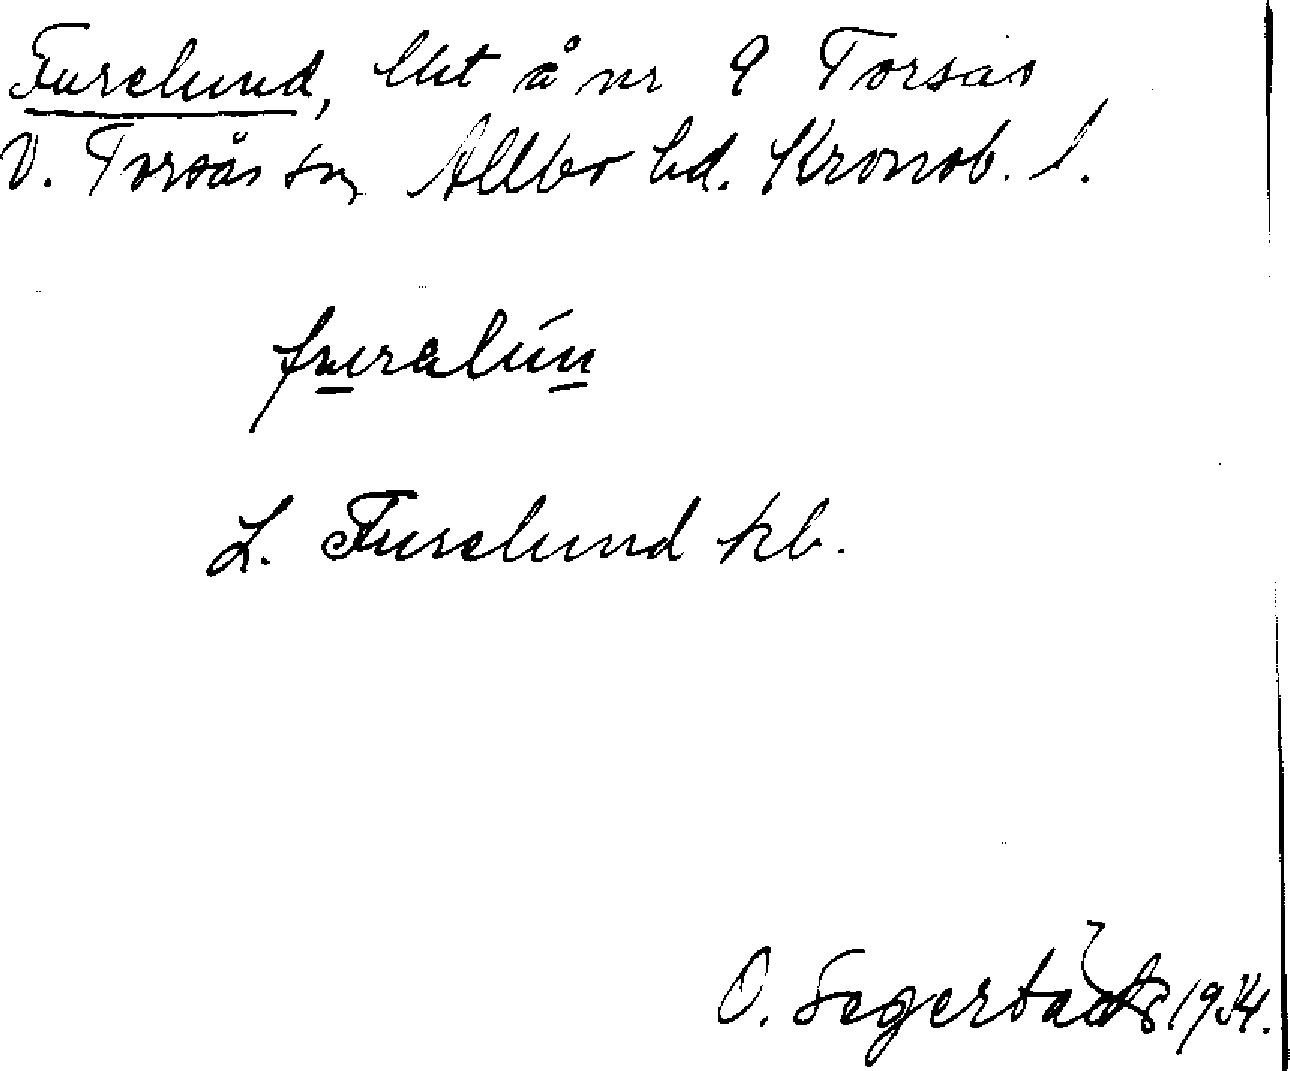 Furelund, lht å nr 9 Torsås
V. Torsås sn Allbo hd. Kronob. l.
furalún
L. Furelund kb.
O. 1934.